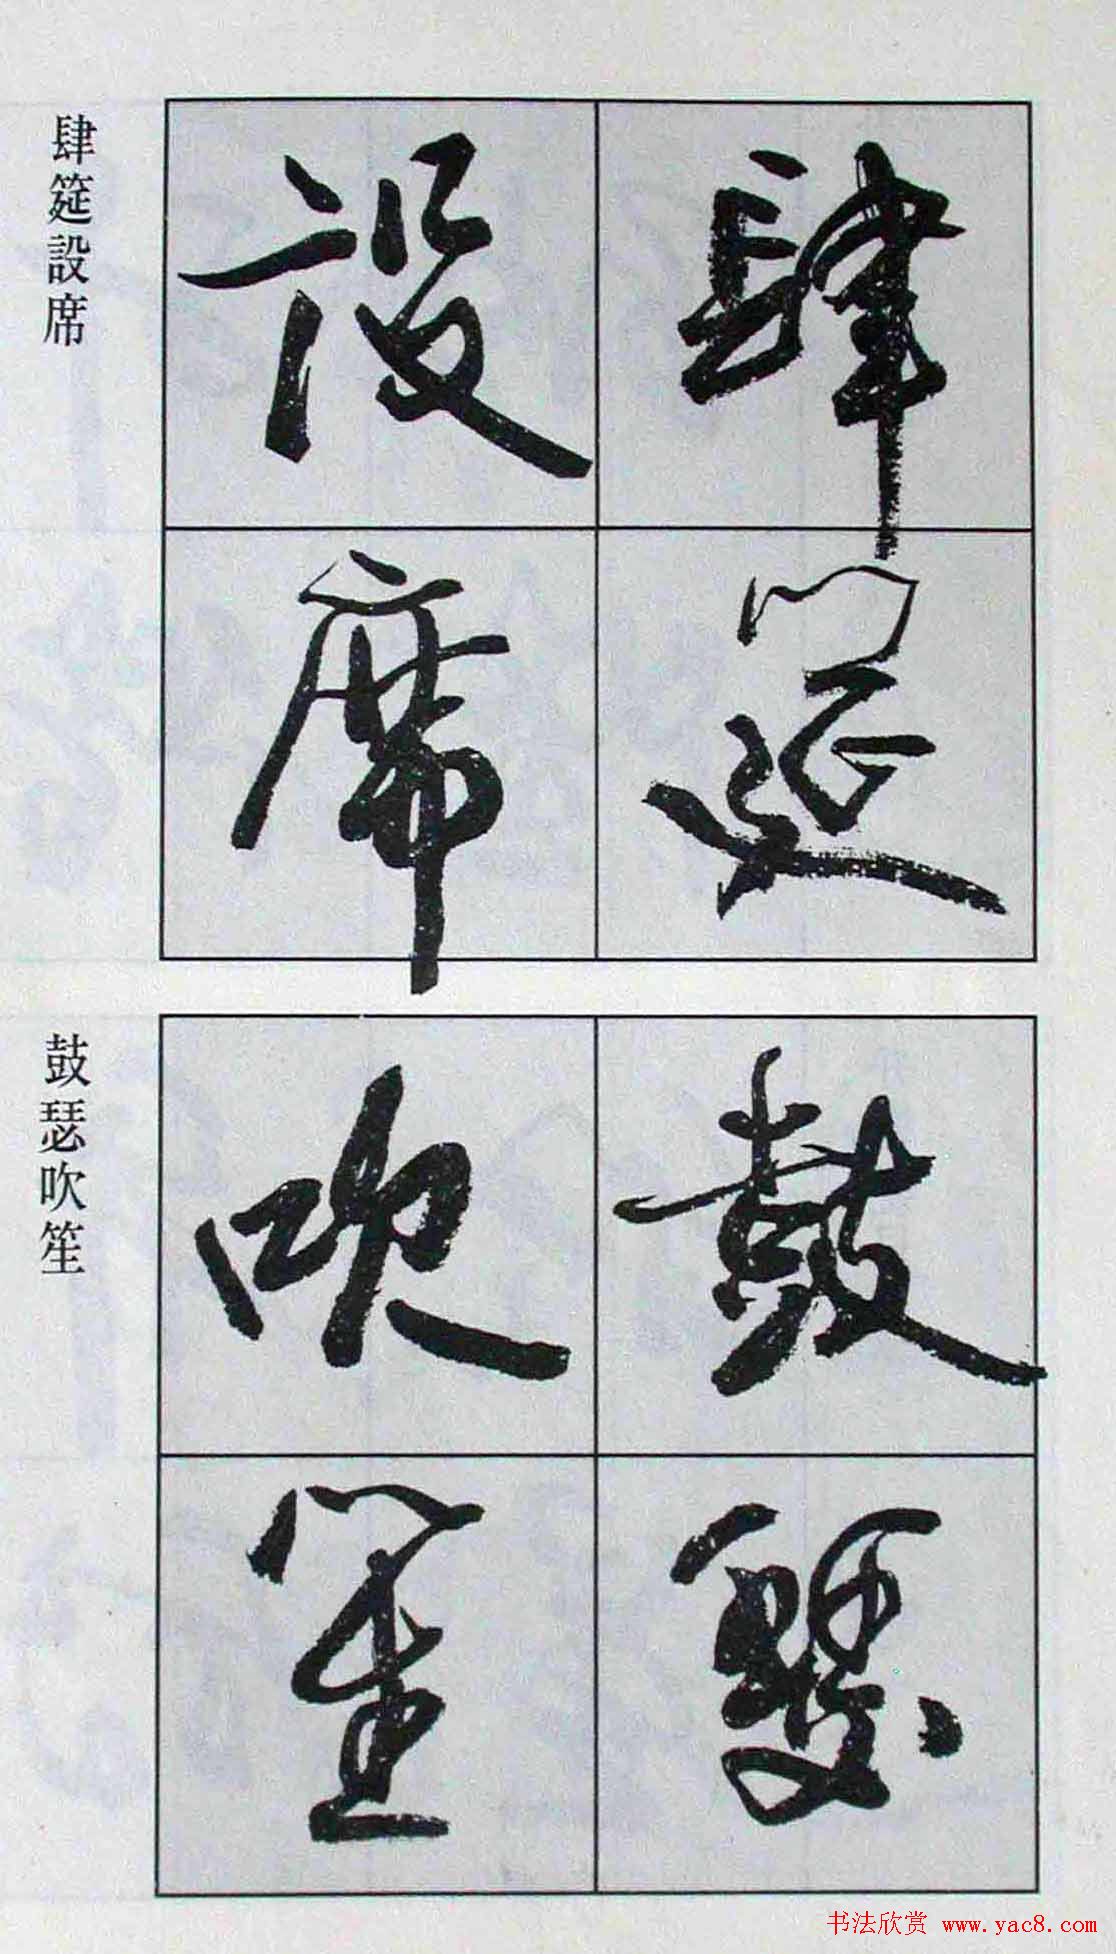 肆筵
設席
肆筵設席
鼓瑟
吹笙
鼓瑟吹笙
书法欣赏 www.yac8.com